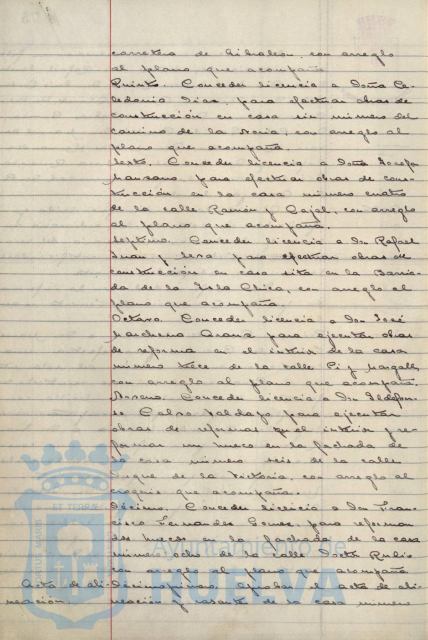 carretera de Gibraleon, con arreglo
al plano que acompaña
Quinto. Conceder licencia a Doña Ce-
ledonia Diaz, para efectuar obras de
construcción en casa sin número del
camino de la Noria, con arreglo al
plano que acompaña.
Sexto. Conceder licencia a Doña Josefa
Manzano, para efectuar obras de cons-
trucción en la casa número cuatro
de la calle Ramón y Cajal, con arreglo
al plano que acompaña.
Septimo. Conceder licencia a Dn Rafael
Juan y para efectuar obras de
construcción en casa sita en la Barria-
da de la Isla Chica, con arreglo al
plano que acompaña.
Octavo. Conceder licencia a Dn José
Marchena Arana para ejecutar obras
de reforma en el interior de la casa
número trece de la calle Pi y Margall,
con arreglo al plano que acompaña.
Noveno. Conceder licencia a Dn Ildefon-
so Calvo para ejecutar
obras de reformas en el interior y re-
formar un hueco en la fachada de
la casa número seis de la calle
Duque de la Victoria, con arreglo al
croquis que acompaña.
Décimo. Conceder licencia a Dn Fran-
cisco Fernandez Gomez, para reformar
dos huecos en la fachada de la casa
número ocho de la calle Doctor Rubio
con arreglo al plano que acompaña
Acta de ali- Décimoprimero. Aprobar el acta de ali-
neación. neación y rasante de la casa número
Ayuntamiento de
HUELVA